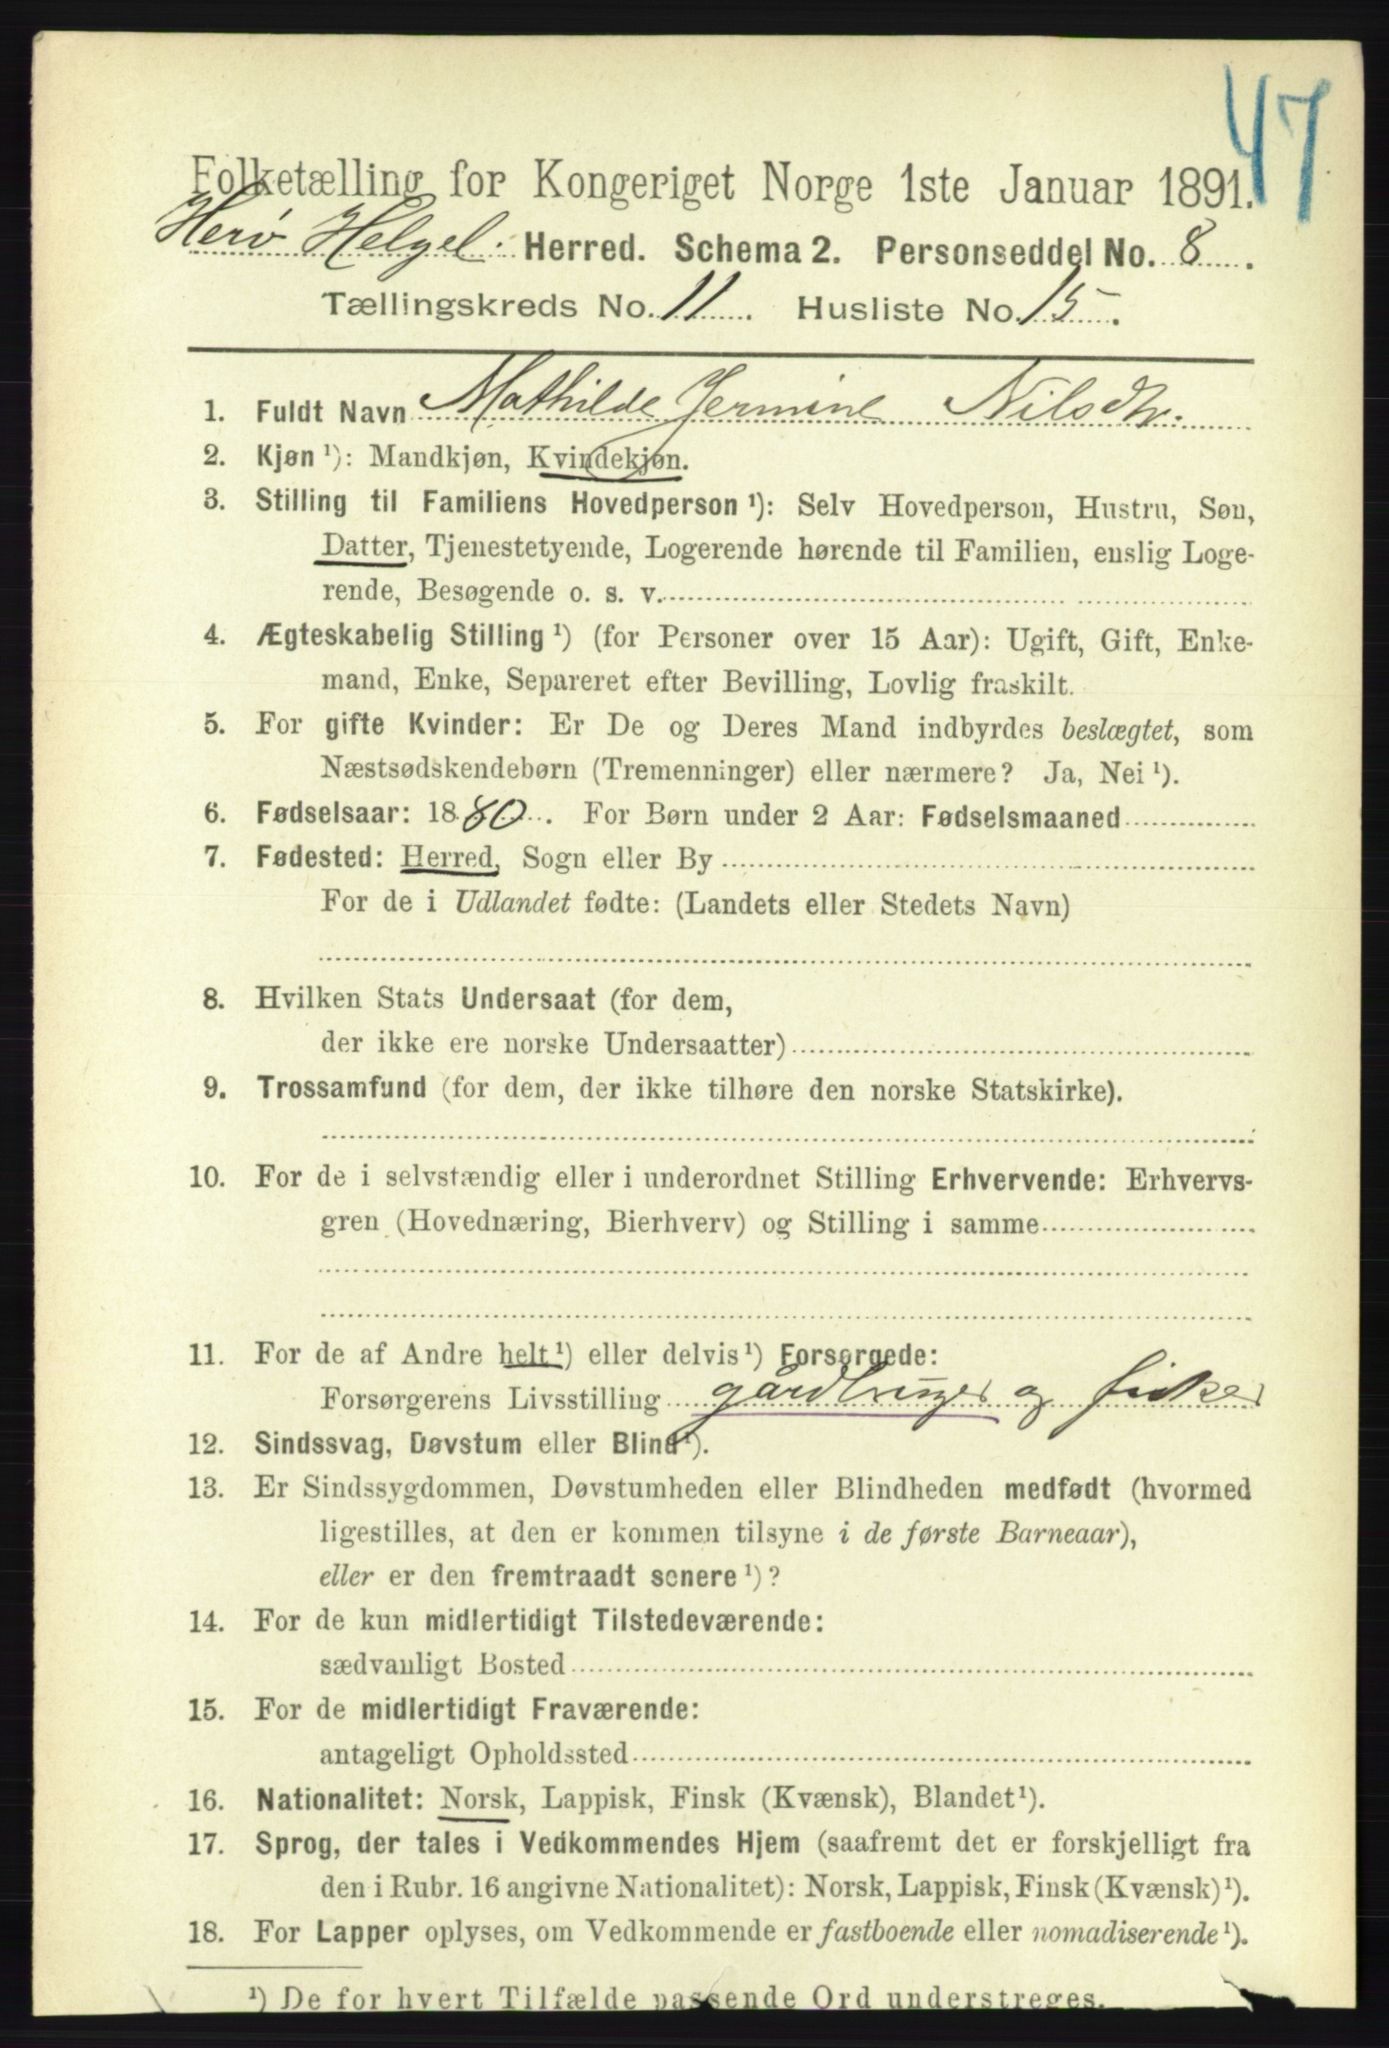 47
Folketælling for Kongeriget Norge 1ste Januar 1891.
Herø Helgel. Herred. Schema 2. Personseddel No. 8.
Tællingskreds No. 11. Husliste No. 15.
1. Fuldt Navn Mathilde Jermine Nilsdtr.
2. Kjøn ¹): Mandkjøn, Kvindekjøn.
3. Stilling til Familiens Hovedperson ¹): Selv Hovedperson, Hustru, Søn,
Datter, Tjenestetyende, Logerende hørende til Familien, enslig Loge-
rende, Besøgende o. s. v.
4. Ægteskabelig Stilling ¹) (for Personer over 15 Aar): Ugift, Gift, Enke-
mand, Enke, Separeret efter Bevilling, Lovlig fraskilt.
5. For gifte Kvinder: Er De og Deres Mand indbyrdes beslægtet, som
Næstsødskendebørn (Tremenninger) eller nærmere? Ja, Nei ¹).
6. Fødselsaar: 1880. For Børn under 2 Aar: Fødselsmaaned
7. Fødested: Herred, Sogn eller By
For de i Udlandet fødte: (Landets eller Stedets Navn)
8. Hvilken Stats Undersaat (for dem,
der ikke ere norske Undersaatter)
9. Trossamfund (for dem, der ikke tilhøre den norske Statskirke).
10. For de i selvstændig eller i underordnet Stilling Erhvervende: Erhvervs-
gren (Hovednæring, Bierhverv) og Stilling i samme
11. For de af Andre helt ¹) eller delvis ¹) Forsørgede:
Forsørgerens Livsstilling gårdbruger og fisker
12. Sindssvag, Døvstum eller Blind ¹).
13. Er Sindssygdommen, Døvstumheden eller Blindheden medfødt (hvormed
ligestilles, at den er kommen tilsyne i de første Barneaar),
eller er den fremtraadt senere ¹)?
14. For de kun midlertidigt Tilstedeværende:
sædvanligt Bosted
15. For de midlertidigt Fraværende:
antageligt Opholdssted
16. Nationalitet: Norsk, Lappisk, Finsk (Kvænsk), Blandet ¹).
17. Sprog, der tales i Vedkommendes Hjem (saafremt det er forskjelligt fra
den i Rubr. 16 angivne Nationalitet): Norsk, Lappisk, Finsk (Kvænsk) ¹).
18. For Lapper oplyses, om Vedkommende er fastboende eller nomadiserende ¹).
¹) De for hvert Tilfælde passende Ord understreges.